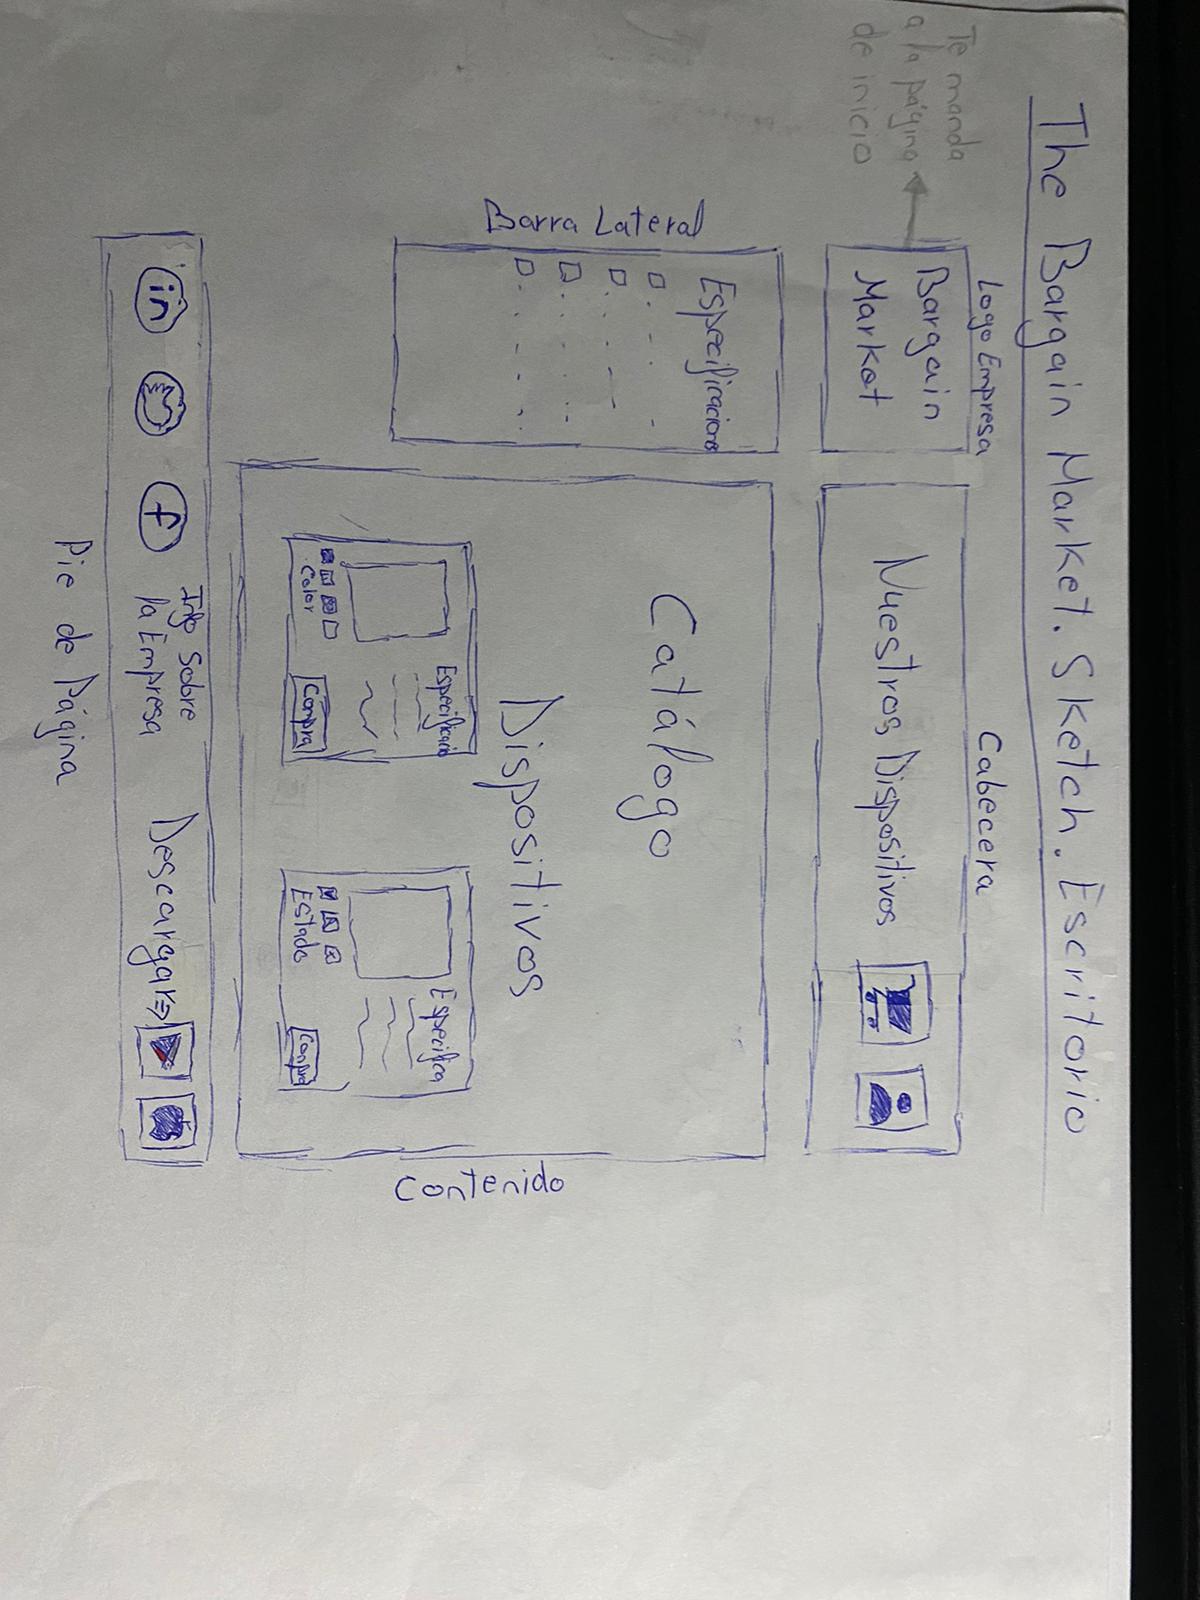 The Bargain Market. Sketch. Escritorio
Te manda
a la página
de inicio
Logo Empresa
Bargain
Market
Cabecera
Nuestros Dispositivos
Barra Lateral
Especificacions
Catálogo
Dispositivos
Especificacio
Color
Compra
Especifica
Estado
Compra
Contenido
in
f
Info Sobre
la Empresa
Descargar⇒
Pie de Página